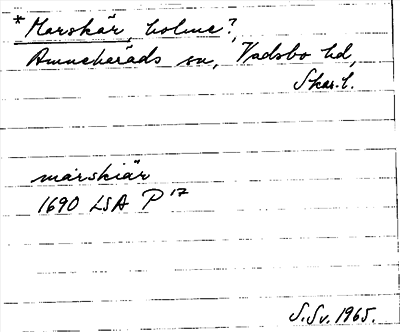 * Marskär, holme?,
Amnehärads sn, Vadsbo hd,
Skar. l.
marskiär
1690 LSA P 17
S.Sv. 1965.